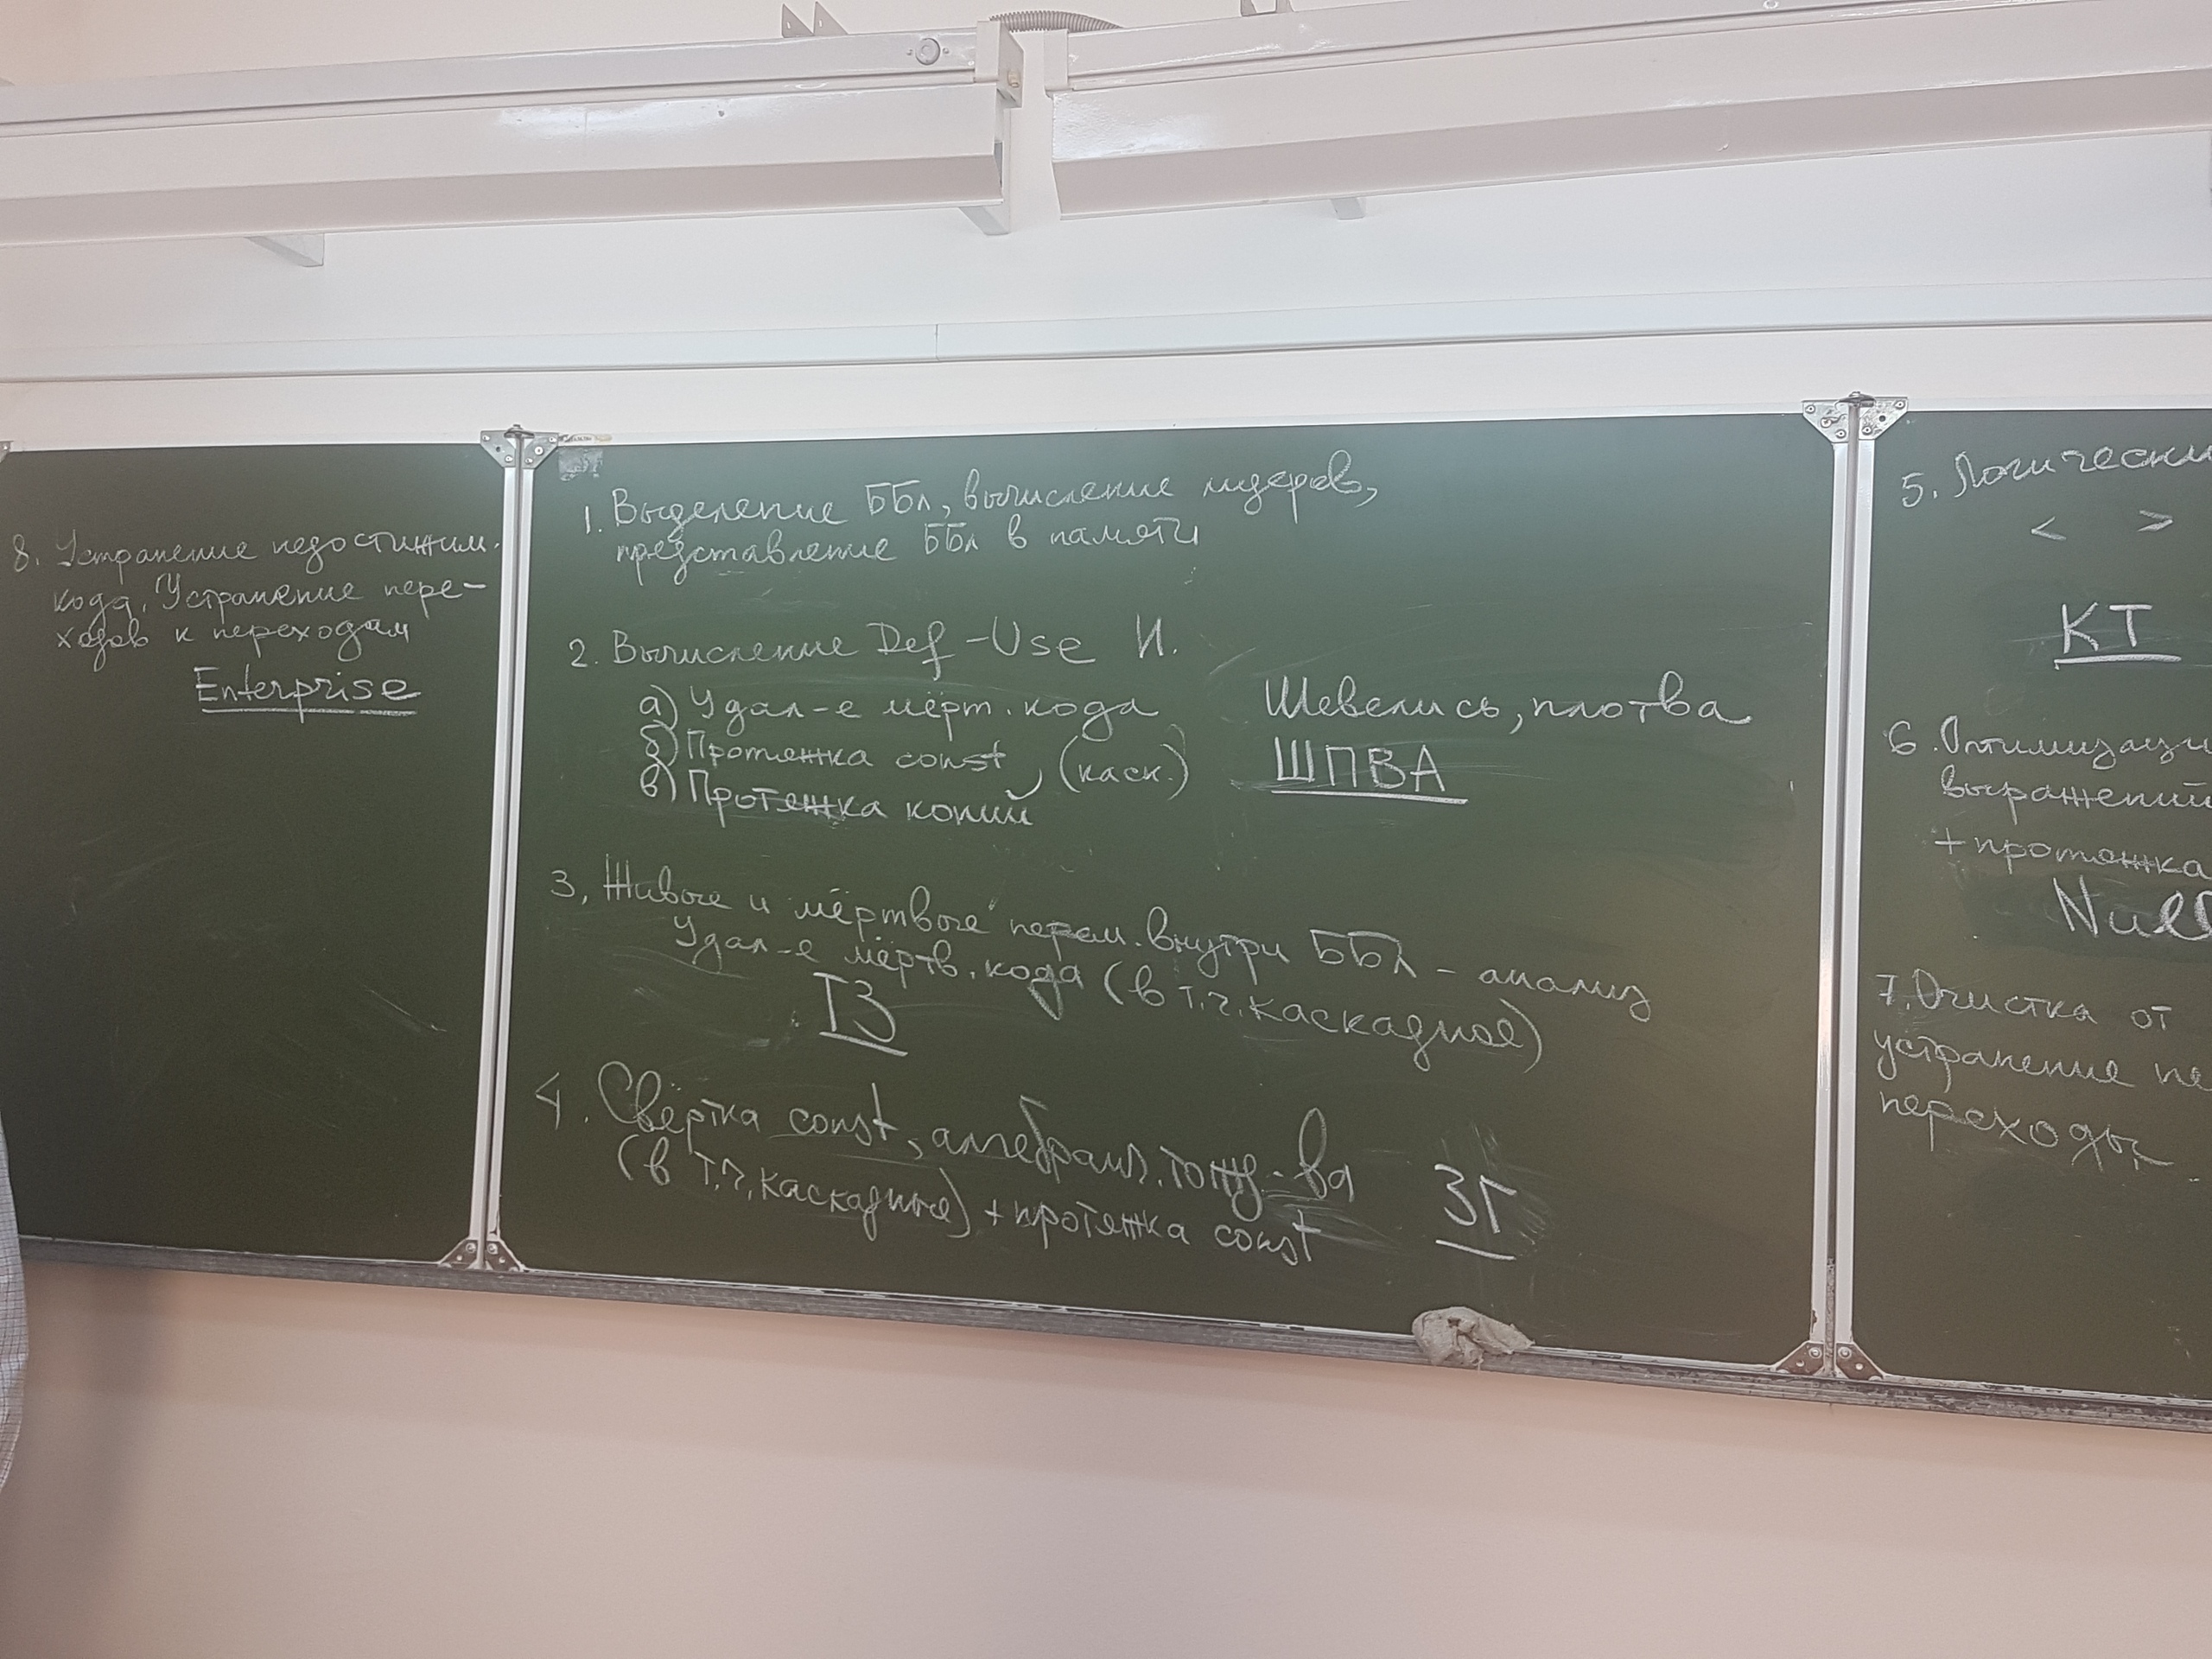 8. Устранение недостижим.
кода. Устранение пере-
ходов к переходам
Enterprise
1. Выделение ББл, вычисление лидеров,
представление ББл в памяти
2. Вычисление Def-Use И.
а) Удал-е мёрт. кода
б) Протяжка const
в) Протяжка копий, (каск.)
Шевелись, плотва
ШПВА
3. Живые и "мёртвые" перем. внутри ББл - анализ
Удал-е мёртв. кода (в т.ч. каскадное)
ТЗ
4. Свёртка const, алгебраич. тожд-ва
(в т.ч. каскадные) + протяжка const
ЗГ
5. Логически
< >
КТ
6. Оптимизаци
выражений
+ протяжка
Null
7. Очистка от
устранение пе
переходы